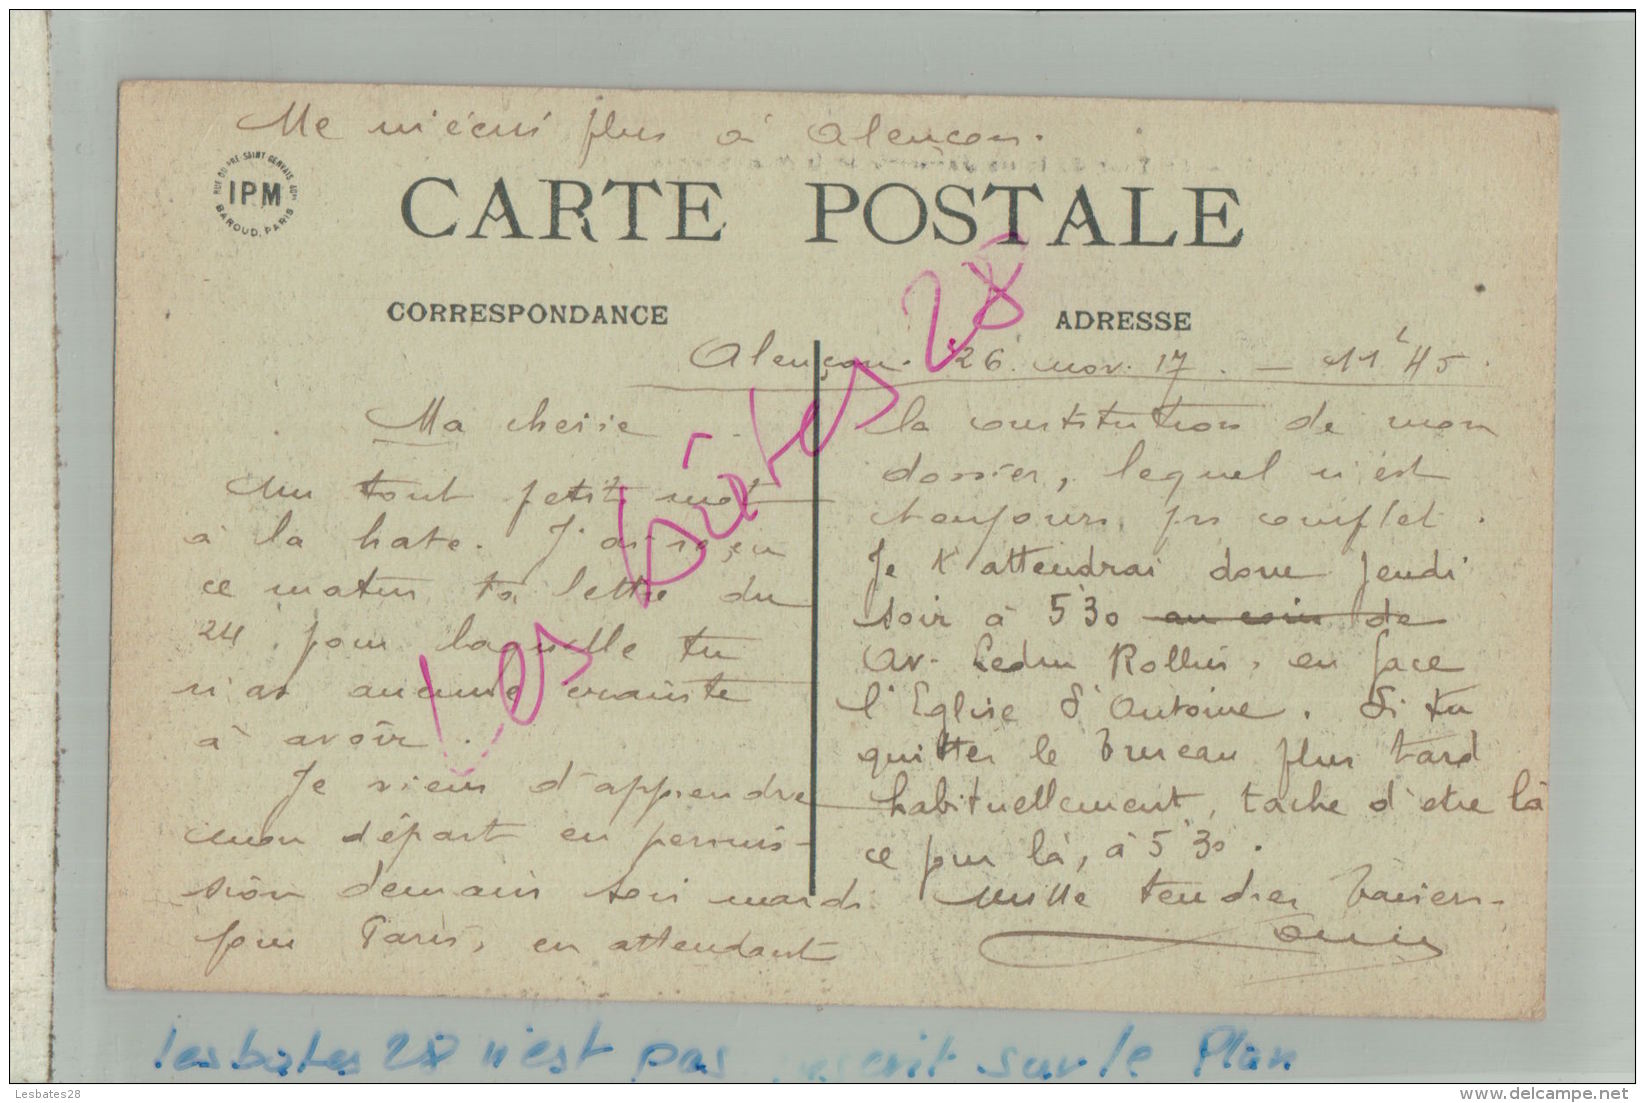 Me m'écris plus à Alençon.
RUE DU PRÉ SAINT GERVAIS
IPM
BAROUD, PARIS
CARTE POSTALE
CORRESPONDANCE
ADRESSE
Alençon. 26 nov. 17. — 11h45.
Ma cherie
Un tout petit mot
à la hate. J'ai reçu
ce matin ta lettre du
24, pour laquelle tu
n'as aucune crainte
à avoir.
Je viens d'apprendre
mon départ en permis-
sion demain soir mardi
pour Paris, en attendant
la constitution de mon
dossier, lequel n'est
toujours pas complet.
Je t'attendrai donc Jeudi
soir à 5'30 au coin de
Av. Ledru Rollin, en face
l'Eglise St Antoine. Si tu
quittes le bureau plus tard
habituellement, tache d'etre là
ce jour là, à 5'30.
Mille tendres baisers.
Les bates 28
lesbates 28 n'est pas inscrit sur le Plan
Lesbates28
http://www.delcampe.net